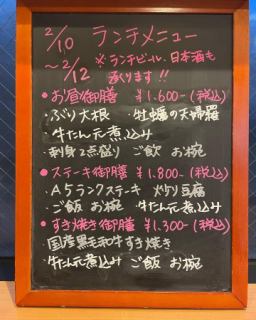 2/10 ランチメニュー
～2/12 ※ランチビール、日本酒も
承ります!!
●お昼御膳 ¥1.600-(税込)
・ぶり大根 ・牡蠣の天婦羅
・牛たん元煮込み
・刺身2点盛り ご飯 お椀
●ステーキ御膳 ¥1.800-(税込)
・A5ランクステーキ 炒り豆腐
・ご飯 お椀 ・牛たん元煮込み
●すき焼き御膳 ¥1.300-(税込)
・国産黒毛和牛すき焼き
・牛たん元煮込み ご飯 お椀